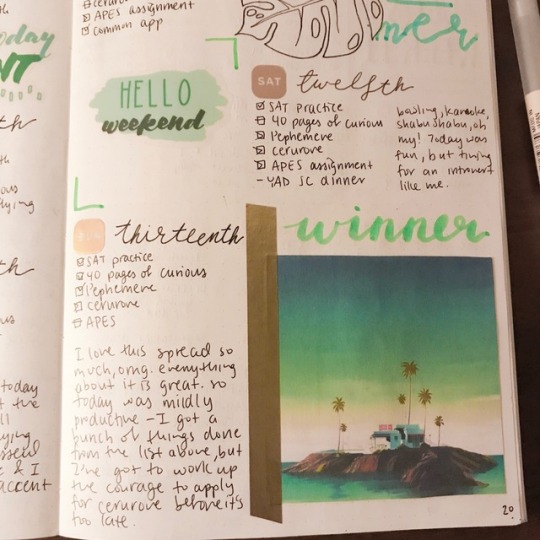 today
NT
th
ous
lying
th
us
today
t the
ll
ying
e & I
accent
cerurove
APES assignment
common app
ner
HELLO
weekend
SAT
twelfth
SAT practice
40 pages of curious
l'ephemere
cerurove
APES assignment
- YAD SC dinner
bowling, karaoke,
shabu shabu, oh
my! Today was
fun, but tiring
for an introvert
like me.
SUN
thirteenth
SAT practice
40 pages of curious
l'ephemere
cerurove
APES
I love this spread so
much, omg. everything
about it is great. so
today was mildly
productive - I got a
bunch of things done
from the list above, but
I've got to work up
the courage to apply
for cerurove before it's
too late.
winner
20